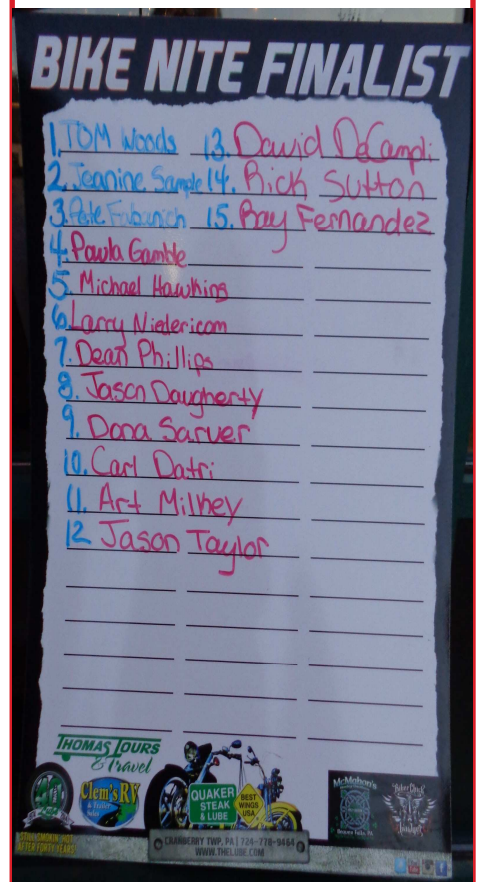 BIKE NITE FINALIST
1. TOM Woods
2. Jeanine Sample
3. Pete Fabanich
4. Pawla Gamble
5. Michael Hawkins
6. Larry Niedericom
7. Dean Phillips
8. Jason Daugherty
9. Dona Sarver
10. Carl Datri
11. Art Milkey
12 Jason Taylor
13. David DeCampli
14. Rick Sutton
15. Ray Fernandez
THOMAS TOURS
& Travel
Clem's RV
& Trailer
Sales
QUAKER
STEAK
& LUBE
BEST
WINGS
USA
McMahon's
Beaver Falls, PA
STILL SMOKIN' HOT
AFTER FORTY YEARS!
CRANBERRY TWP, PA | 724-778-9464
WWW.THELUBE.COM